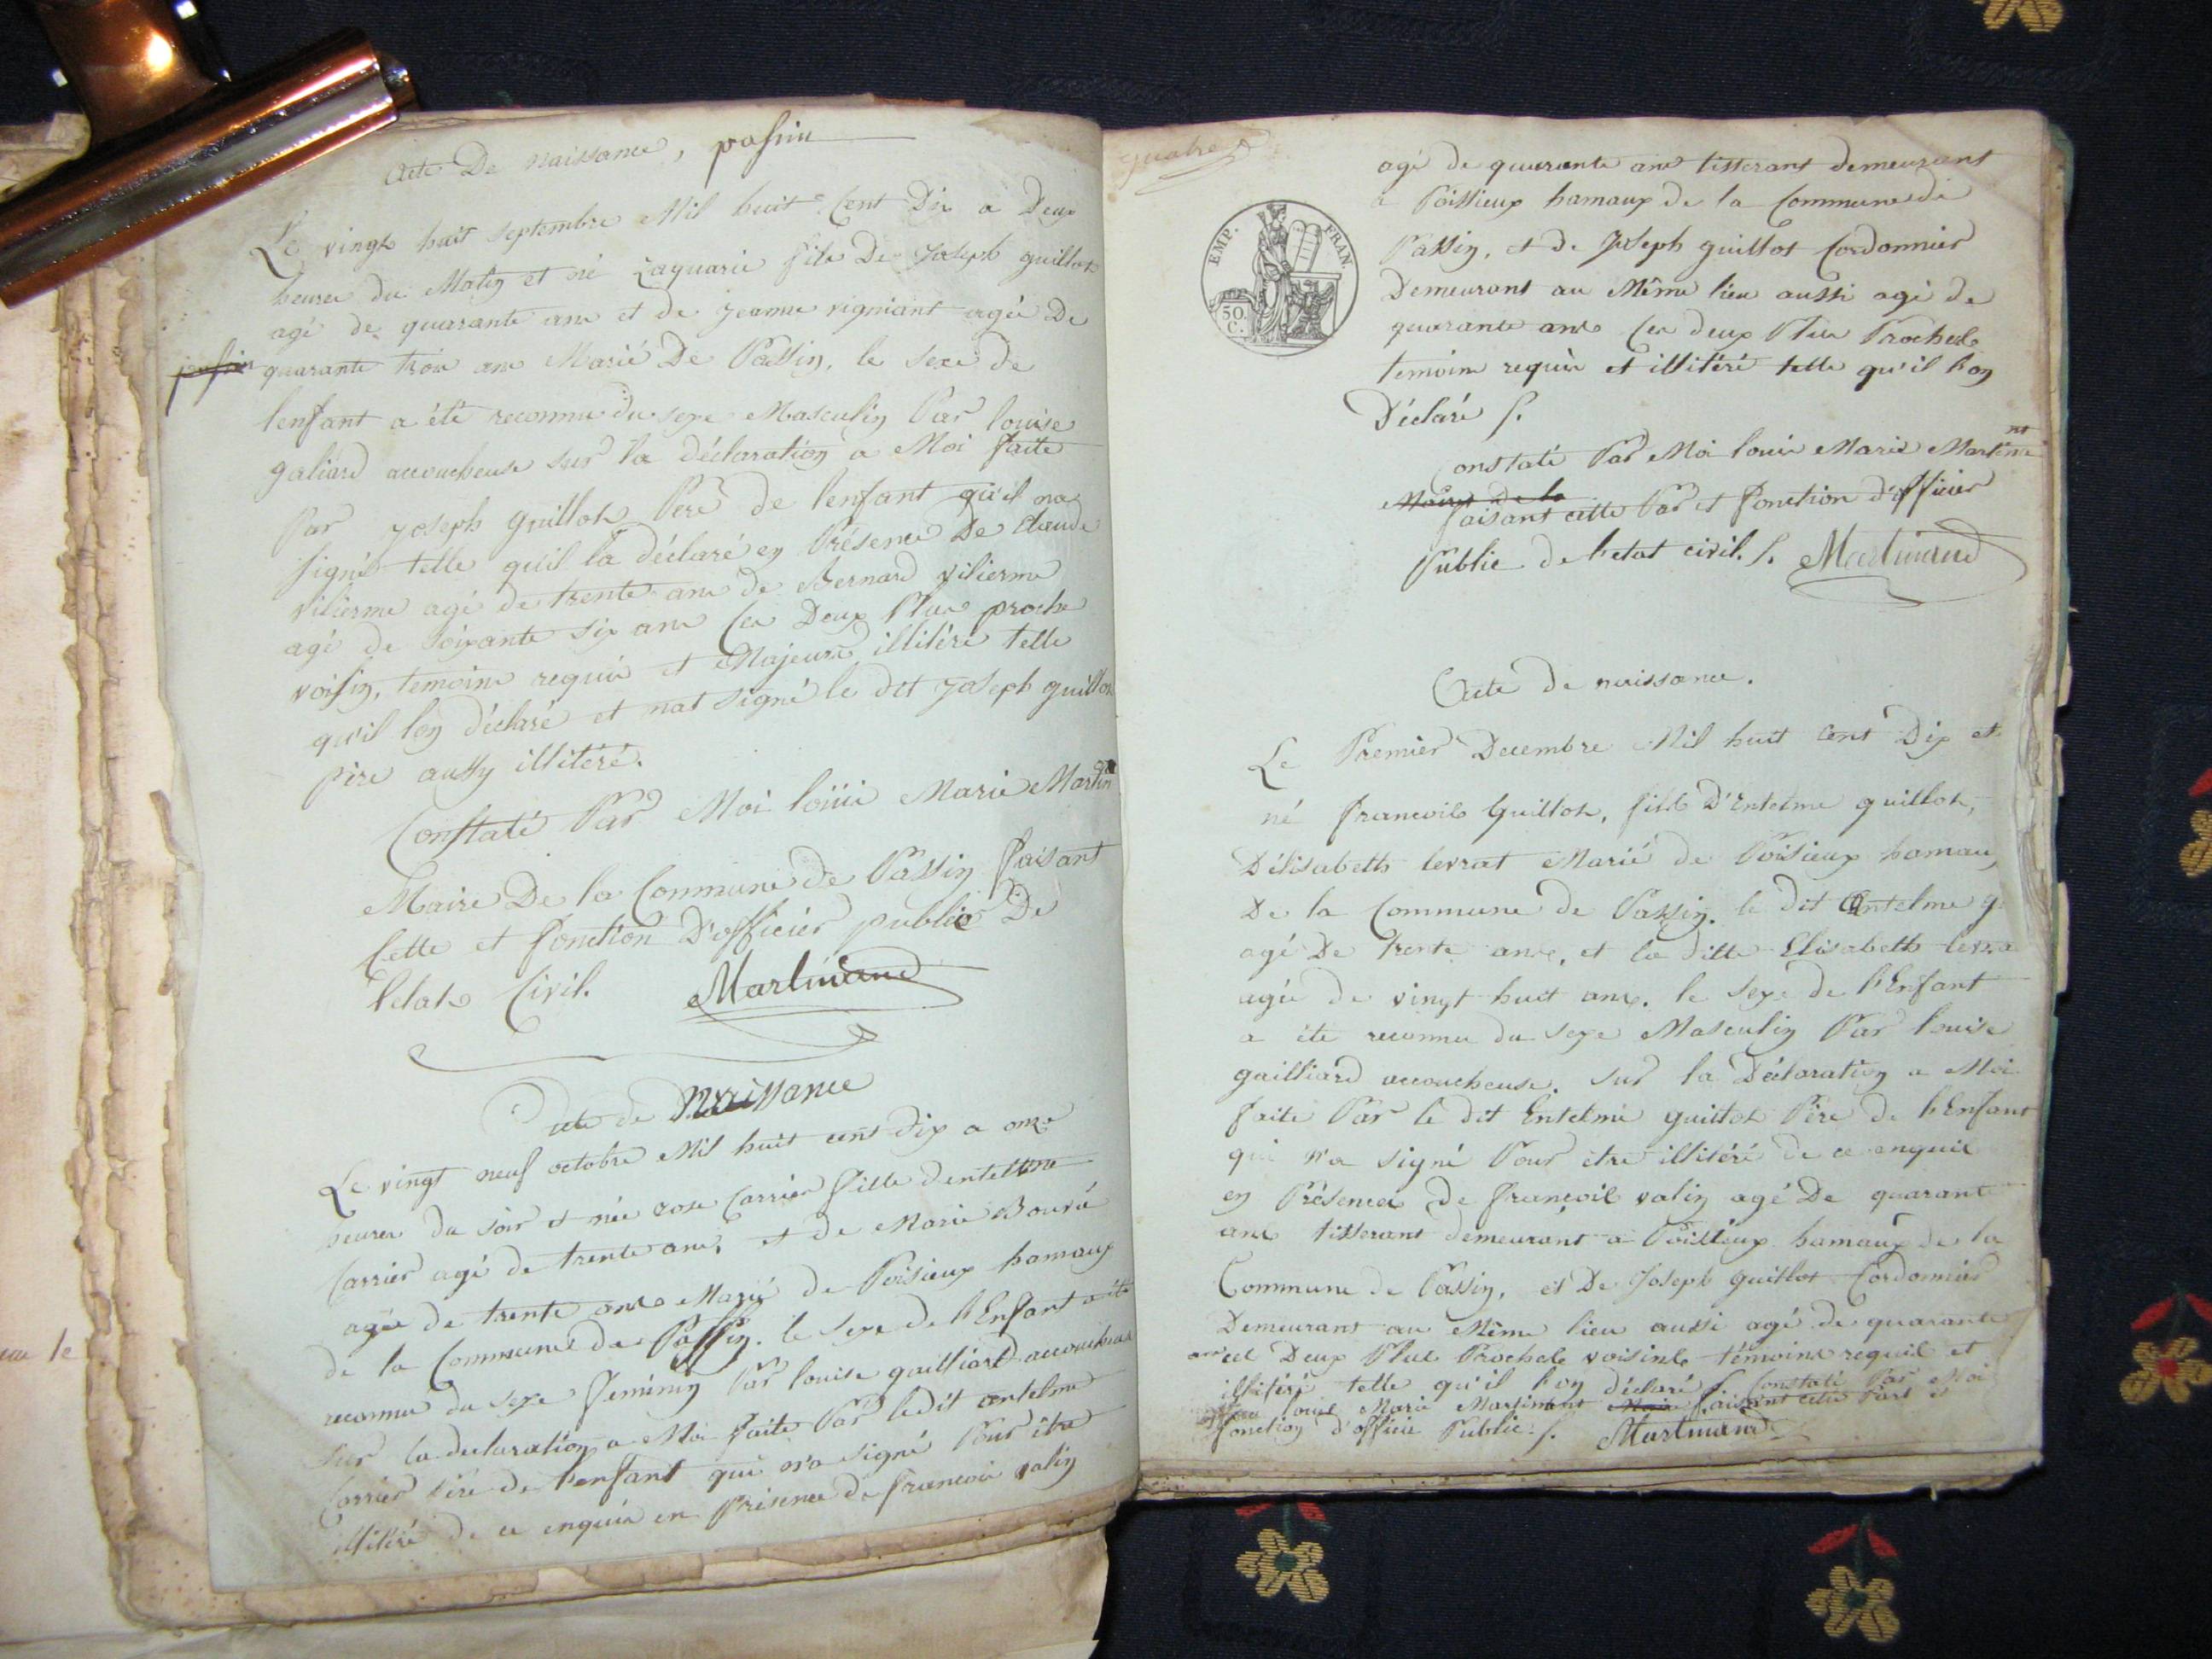 Acte De Naissance, passin
Le vingt huit septembre Mil huit Cent Dix a Deux
heures du Matin et né Zaquarie fils De Joseph guillot
agé de quarante ans et de jeanne vigniant agée De
passin quarante trois ans Marié De Passin, le sexe de
lenfant a été reconnu du sexe Masculin Par louise
galiard accoucheuse sur la déclaration a Moi faite
Par joseph guillot Pere de lenfant qu'il na
signé telle qu'il la déclaré en Présence De Claude
vilierme agé de trente ans de Bernard vilierme
agé de Soixante six ans Ces Deux Plus proche
voisin, temoins requis et Majeurs illitéré telle
qu'il lon déclaré et nat signé le dit joseph guillot
pere aussy illitéré.
Constaté Par Moi loüis Marie Martin
Maire De la Commune de Passin faisant
Cette et fonction D'officier public De
l'etat Civil. Martinand
Acte de Naissance
Le vingt neuf octobre Mil huit cent dix a onze
heures du soir et née rose Carrier fille dentelme
Carrier agé de trente ans, et de Marie Bouvié
agée de trente ans Marié de Poisieux hamaux
de la Commune de Passin. le sexe de l'Enfant a été
reconnu du sexe feminin Par louise gailliard accoucheuse
sur la declaration a Moi faite Par ledit antelme
Carrier Pere de l'enfant qui n'a signé Pour être
illitéré de ce enquis en Présence de francois valin
quatre
EMP. FRAN.
50. C.
agé de quarante ans tisserant demeurant
a Poissieux hamaux de la Commune de
Passin, et de Joseph guillot Cordonnier
Demeurant au Même lieu aussi agé de
quarante ans Ces deux Plus Proches
temoins requis et illitéré telle qu'il l'on
Déclaré /.
Constaté Par Moi louis Marie Martinant
Maire de la
faisant cette Par et fonction d'officier
Public de l'etat civil. /. Martinand
Acte de naissance.
Le Premier Decembre Mil huit cent Dix et
né francois Guillot, fils D'Entelme guillot,
D'élisabeth levrat Marié de Poisieux hamau
De la Commune de Passin. le dit Antelme g
agé De trente ans, et la ditte Elisabeth levra
agée de vingt huit ans. le sexe de l'Enfant
a été reconnu du sexe Masculin Par louise
gailliard accoucheuse. sur la Déclaration a Moi
faite Par le dit Entelme guillot Père de l'Enfant
qui n'a signé Pour etre illitéré de ce enquis
en Présence de francois valin agé De quarante
ans tisserant demeurant a Poissieux hamaux de la
Commune de Passin, et De Joseph guillot Cordonnier
Demeurant au Même lieu aussi agé de quarante
ans ces Deux Plus Proches voisins témoins requis et
illitéré telle qu'il l'on déclaré /. Constaté Par Moi
louis Marie Martinant Maire faisant cette Part et
fonction d'officie Public. /. Martinand